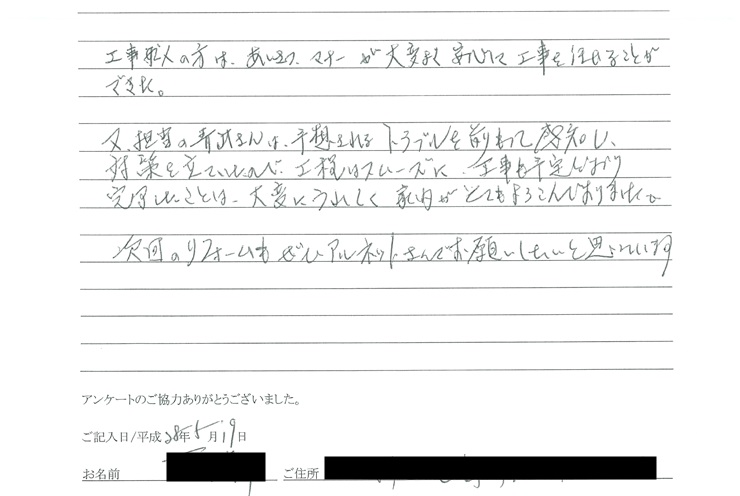 工事職人の方は、あいさつ、マナーが大変よく安心して工事を任せることが
できた。
又、担当の青武さんは、予想されるトラブルを前もって察知し、
対策を立てていたので、工程はスムーズに、工事も予定どおり
完了したことは、大変にうれしく家内がとてもよろこんでおりました。
次回のリフォームもぜひアルネットさんでお願いしたいと思っています
アンケートのご協力ありがとうございました。
ご記入日/平成28年5月19日
お名前 ご住所